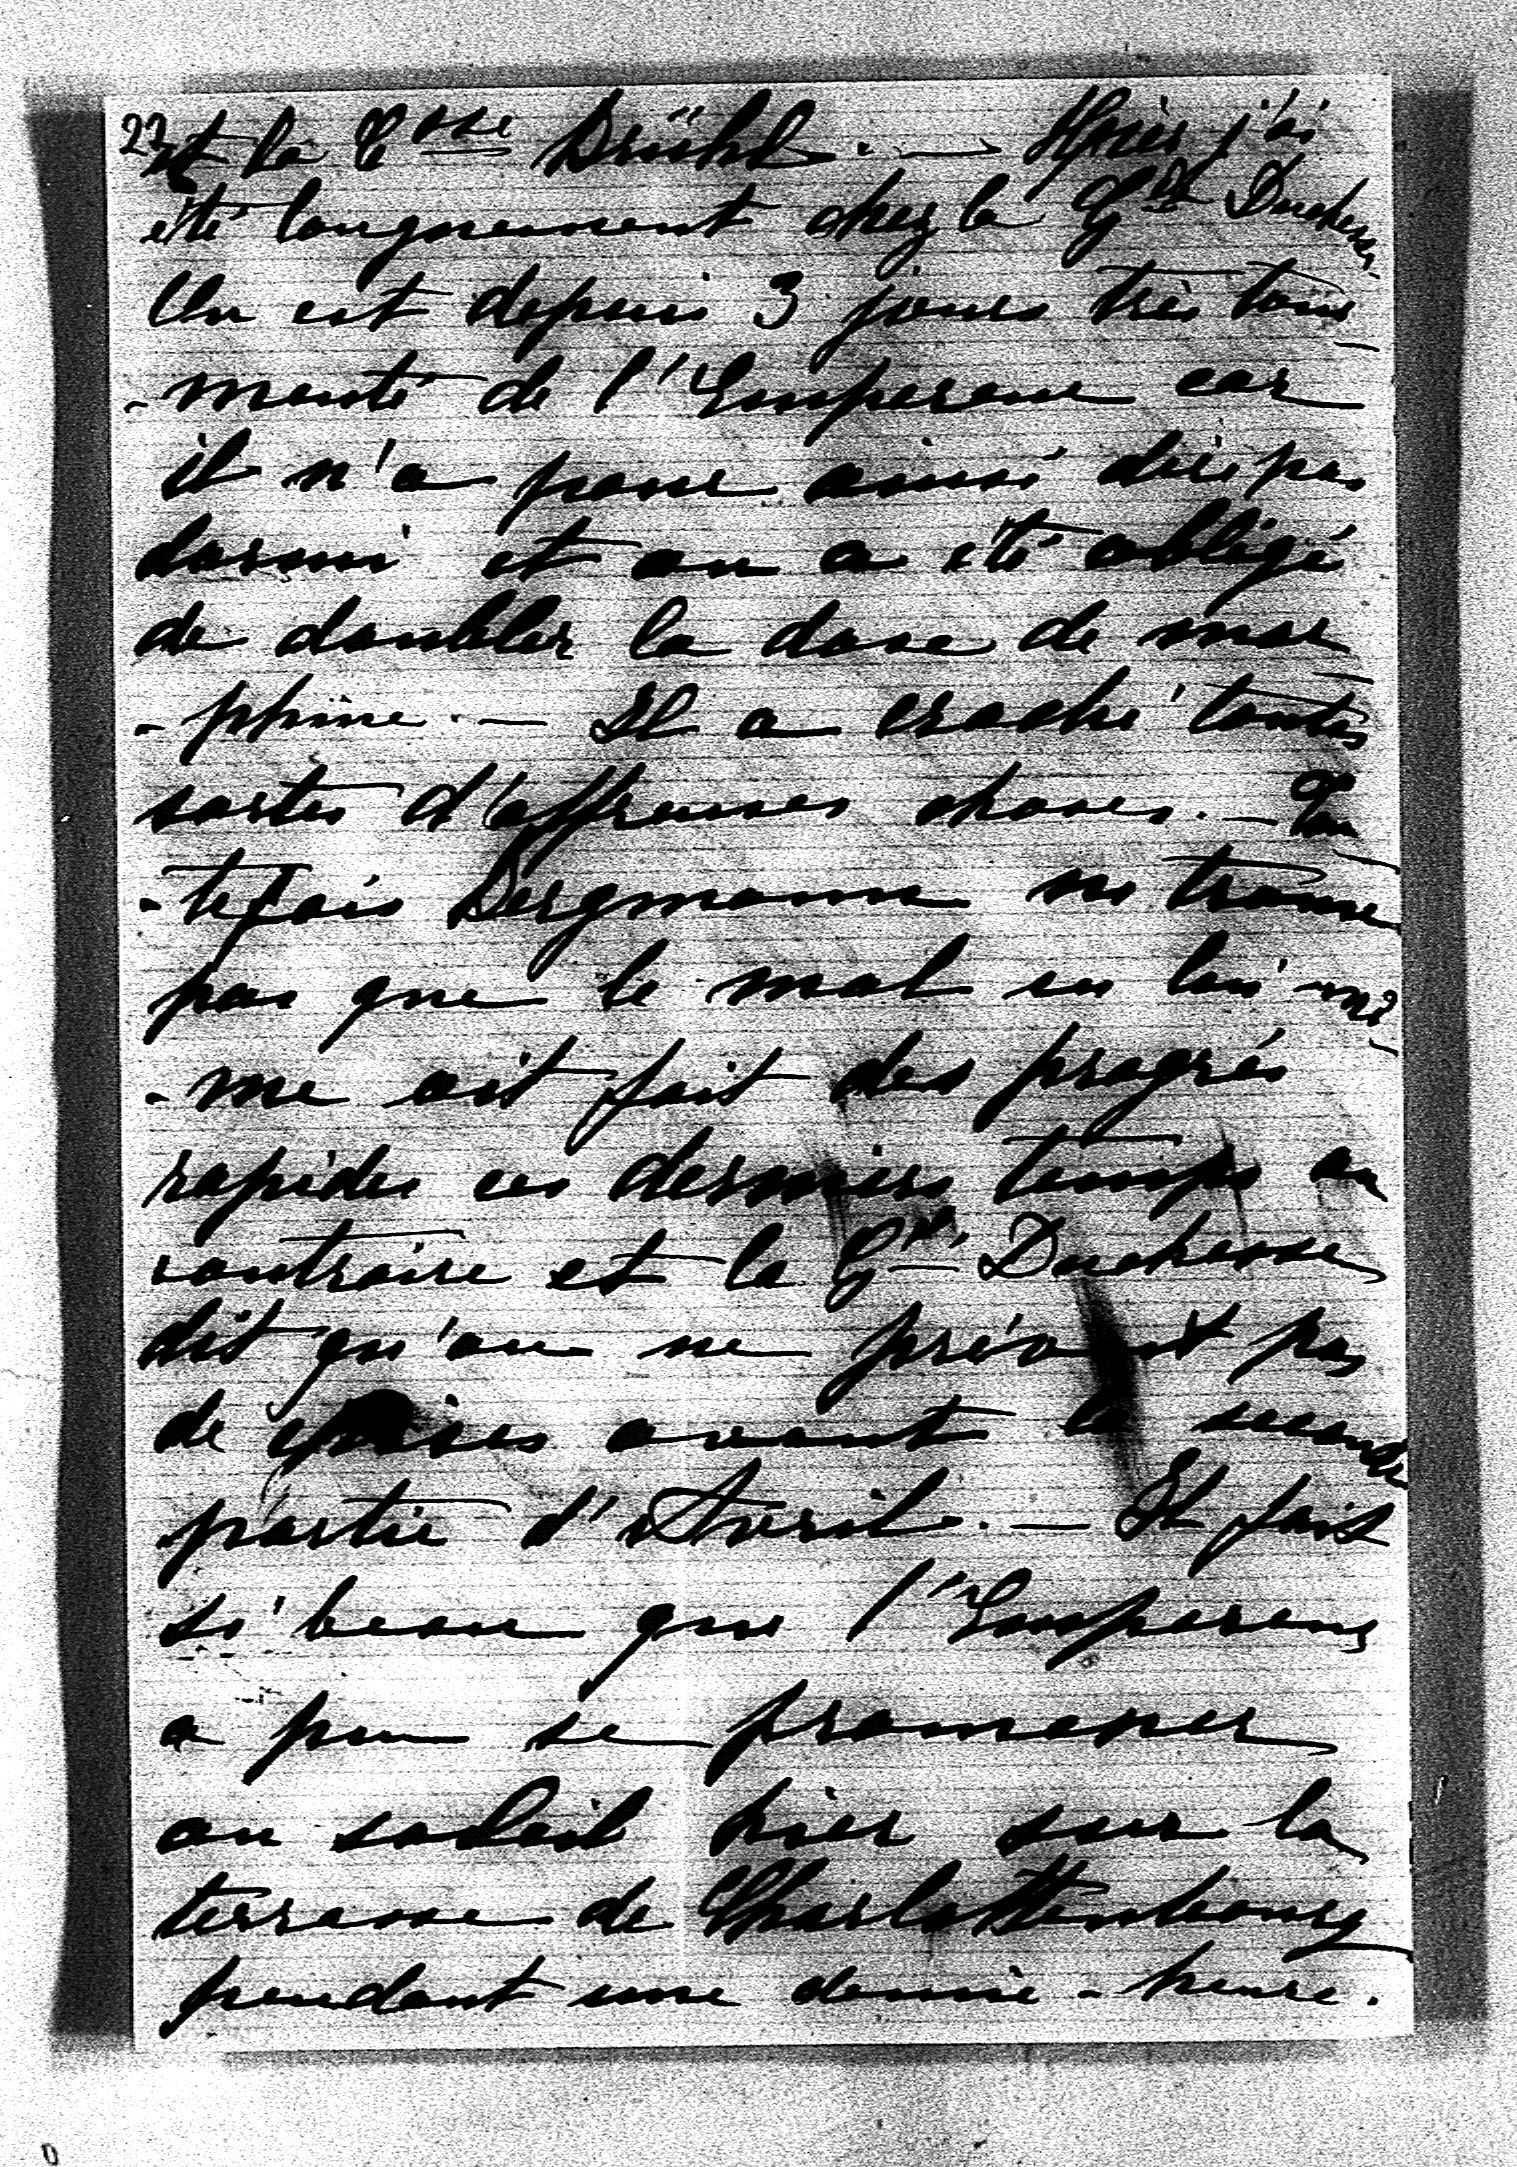 23
et la Csse Brühl. — Hier j'ai
été longuement chez la Gde Duchesse.
On est depuis 3 jours très tour
-menté de l'Empereur car
il n'a pour ainsi dire pas
dormi et on a été obligé
de doubler la dose de mor
-phine. — Il a craché toutes
sortes d'affreuses choses. — Tou
-tefois Bergmann ne trouve
pas que le mal en lui-mê
-me ait fait des progrès
rapides ces derniers temps au
contraire et la Gde Duchesse
dit qu'on ne prévoit pas
de crises avant la seconde
partie d'Avril. — Il fait
si beau que l'Empereur
a pu se promener
au soleil hier sur la
terrasse de Charlottenbourg
pendant une demie-heure.